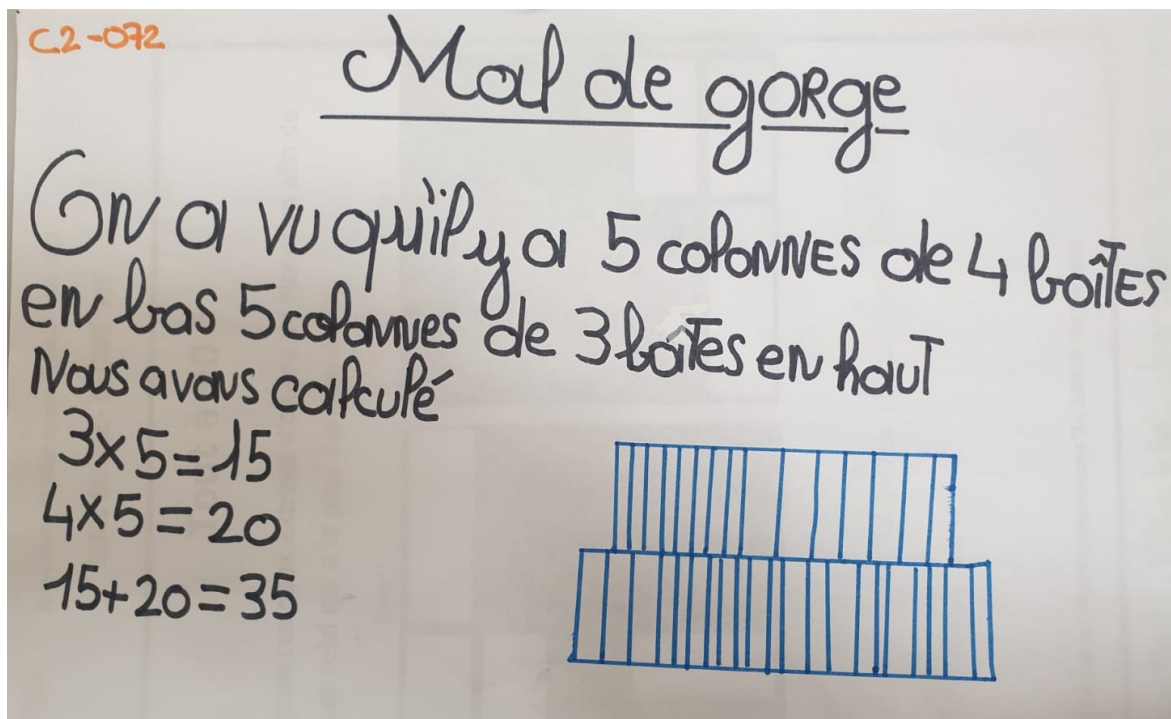 C2-072
Mal de gorge
On a vu qu'il y a 5 colonnes de 4 boîtes
en bas 5 colonnes de 3 boîtes en haut
Nous avons calculé
3×5=15
4×5=20
15+20=35